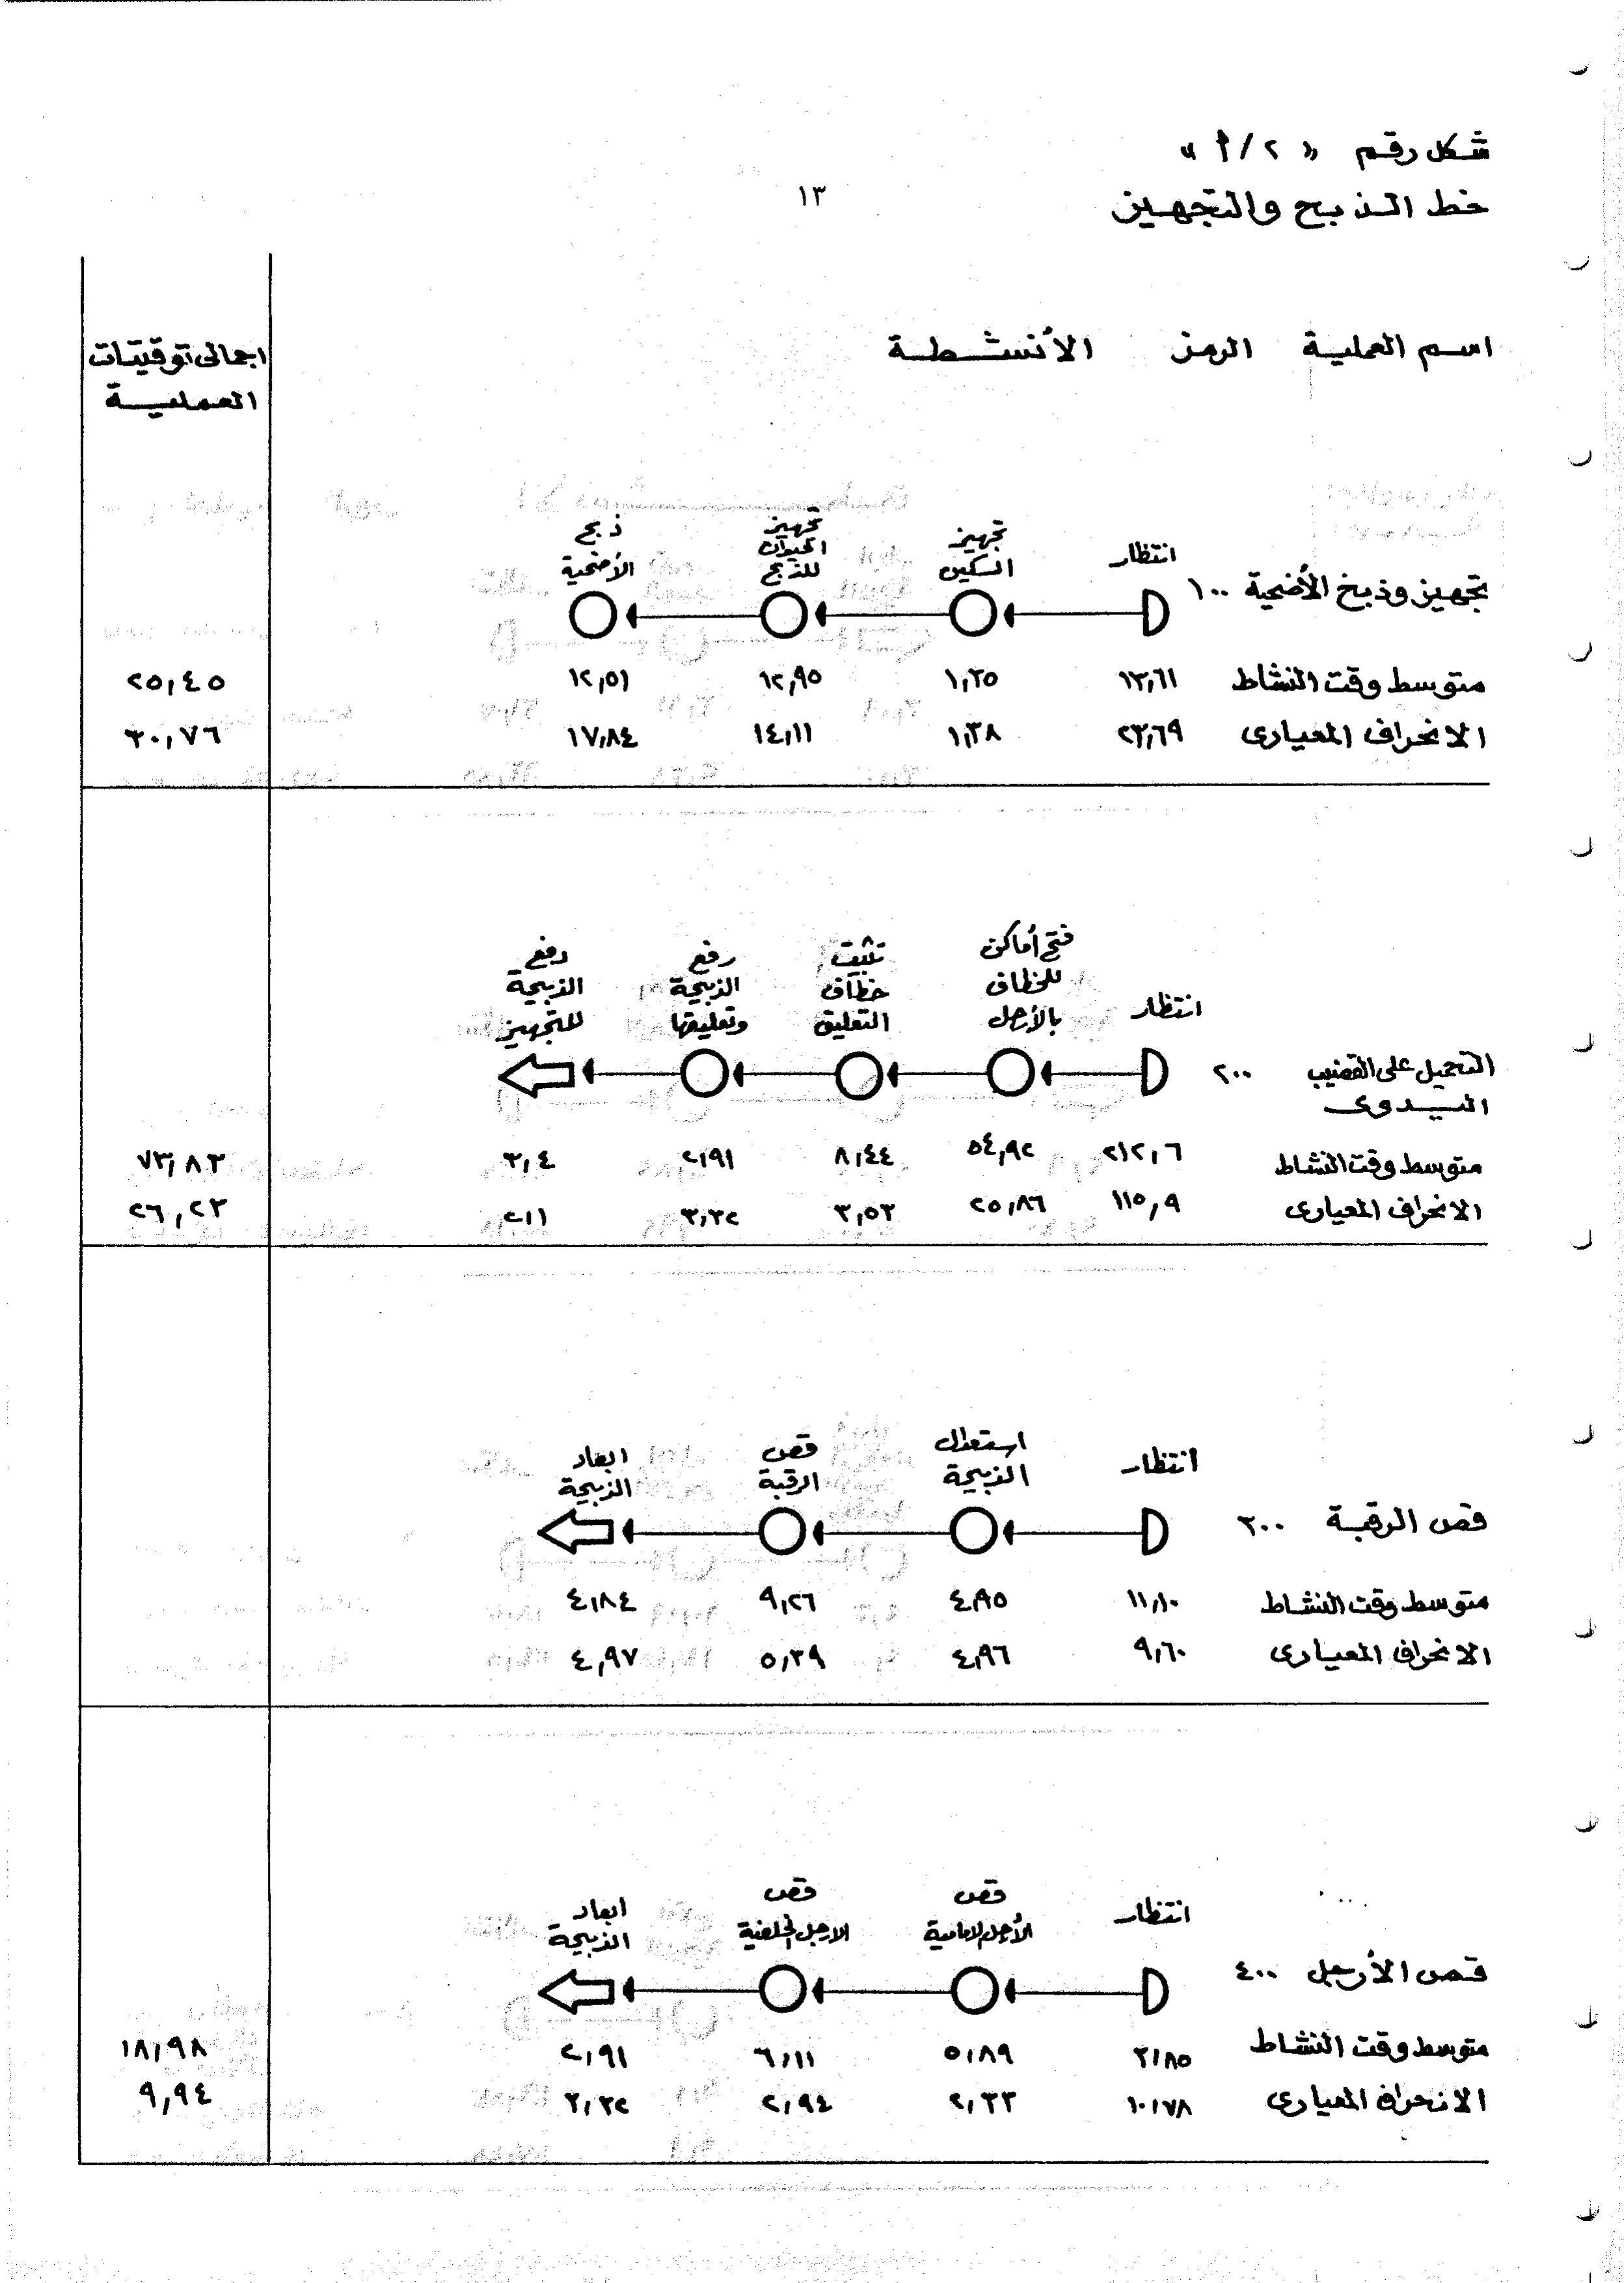 شكل رقم « ٢ / أ »
١٣
خط الذبح والتجهيز
اسم العملية الرمز الأنشطة
اجمالى توقيتات
العملية
تجهيز وذبح الأضحية ١٠٠
انتظار
تجهيز
السكين
تجهيز
الحيوان
للذبح
ذبح
الأضحية
متوسط وقت النشاط ١٣,٦١ ١,٣٥ ١٢,٩٥ ١٢,٥١ ٢٥,٤٥
الانحراف المعيارى ٢٣,٦٩ ١,٣٨ ١٤,١١ ١٧,٨٤ ٣٠,٧٦
التحميل على القضيب ٢٠٠
اليدوى
انتظار
فتح أماكن
للخطاف
بالأرجل
تثبيت
خطاف
التعليق
رفع
الذبيحة
وتعليقها
دفع
الذبيحة
للتجهيز
متوسط وقت النشاط ٢١٢,٦ ٥٤,٩٢ ٨,٤٤ ٢,٩١ ٣,٤ ٧٣,٨٣
الانحراف المعيارى ١١٥,٩ ٢٥,٨٦ ٣,٥٣ ٣,٣٢ ٢,١ ٢٦,٢٣
قص الرقبة ٣٠٠
انتظار
استعدال
الذبيحة
قص
الرقبة
ابعاد
الذبيحة
متوسط وقت النشاط ١١,١٠ ٤,٩٥ ٩,٢٦ ٤,٨٤
الانحراف المعيارى ٩,٦٠ ٤,٩٦ ٥,٣٩ ٤,٩٧
قص الأرجل ٤٠٠
انتظار
قص
الأرجل الامامية
قص
الارجل الخلفية
ابعاد
الذبيحة
متوسط وقت النشاط ٣,٨٥ ٥,٨٩ ٦,١١ ٢,٩١ ١٨,٩٨
الانحراف المعيارى ١٠,٧٨ ٢,٣٣ ٢,٩٤ ٣,٣٢ ٩,٩٤